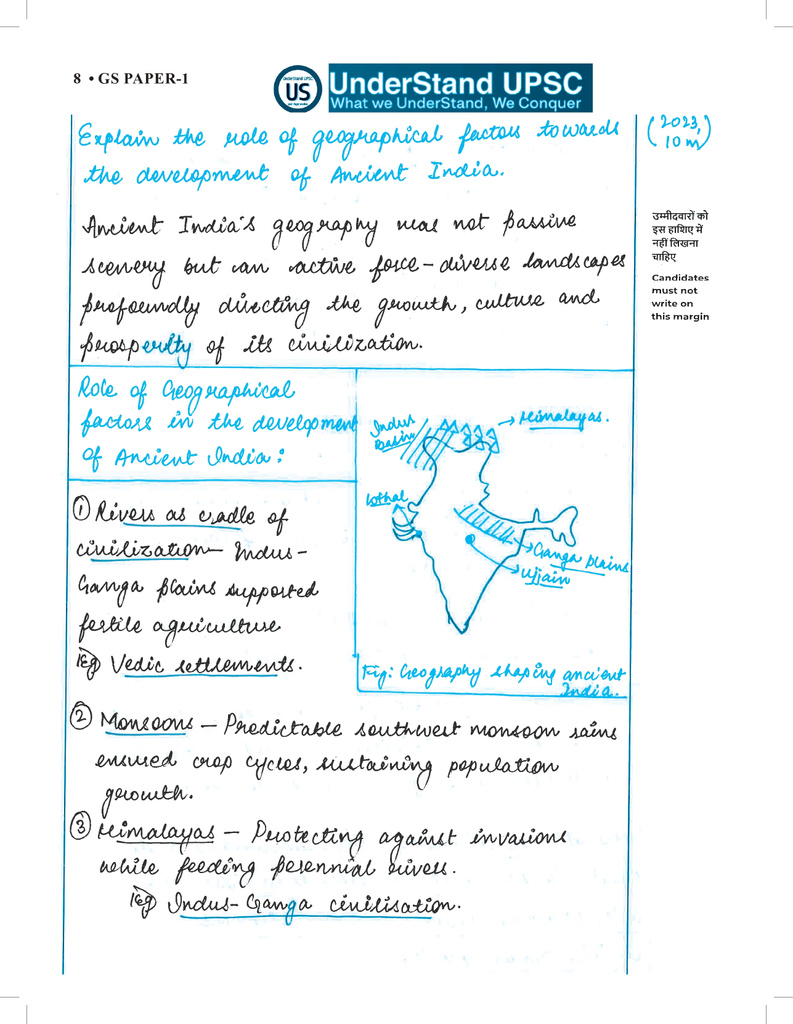 8 • GS PAPER-1
UnderStand UPSC
US
UnderStand UPSC
What we UnderStand, We Conquer
Explain the role of geographical factors towards
the development of Ancient India.
(2023,
10 m)
उम्मीदवारों को
इस हाशिए में
नहीं लिखना
चाहिए
Candidates
must not
write on
this margin
Ancient India's geography was not passive
scenery but an active force – diverse landscapes
profoundly directing the growth, culture and
prosperity of its civilization.
Role of Geographical
factors in the development
of Ancient India:
① Rivers as cradle of
civilization – Indus-
Ganga plains supported
fertile agriculture
Eg Vedic settlements.
Indus
basin
Himalayas.
Lothal
Ganga plains
Ujjain
Fig: Geography shaping ancient
India.
② Monsoons – Predictable southwest monsoon rains
ensured crop cycles, sustaining population
growth.
③ Himalayas – Protecting against invasions
while feeding perennial rivers.
Eg Indus-Ganga civilisation.